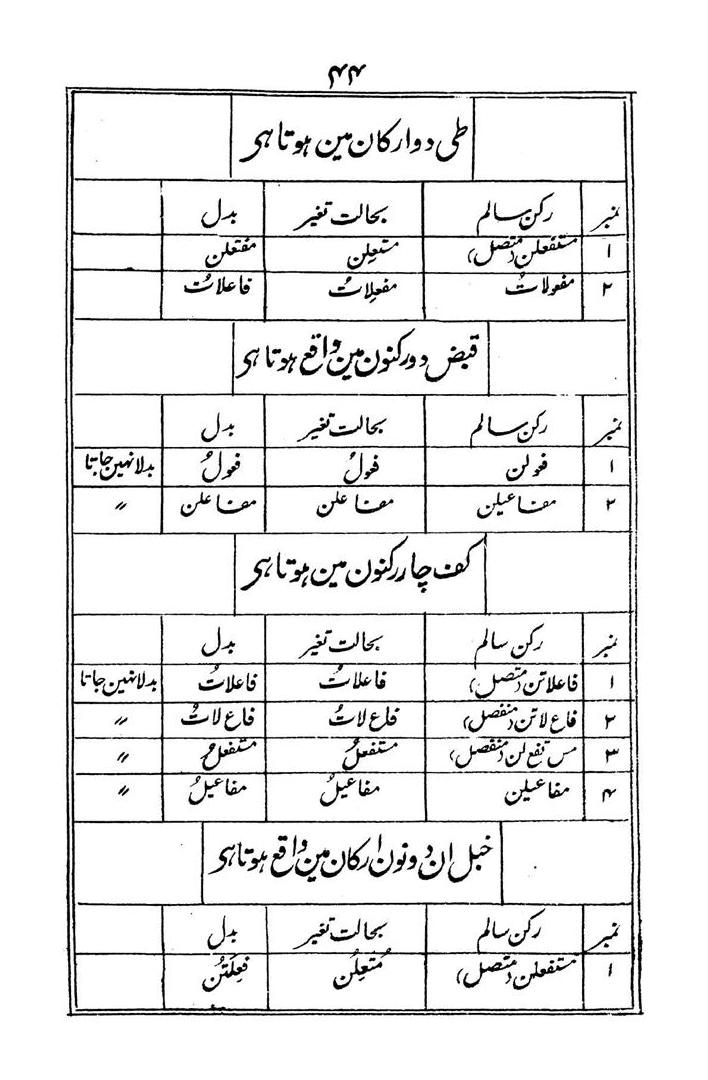 ۴۴
طی دو ارکان مین ہوتا ہی
نمبر رکن سالم بحالت تغیر بدل
۱ مستفعلن (متصل) مستعلن مفتعلن
۲ مفعولاتُ مفعلاتُ فاعلاتُ
قبض دو رکنون مین واقع ہوتا ہی
نمبر رکن سالم بحالت تغیر بدل
۱ فعولن فعولُ فعولُ بدلا نہین جاتا
۲ مفاعیلن مفاعلن مفاعلن 〃
کف چار رکنون مین ہوتا ہی
نمبر رکن سالم بحالت تغیر بدل
۱ فاعلاتن (متصل) فاعلاتُ فاعلاتُ بدلا نہین جاتا
۲ فاع لاتن (منفصل) فاع لاتُ فاع لاتُ 〃
۳ مس تفع لن (منفصل) مستفعلُ مستفعلُ 〃
۴ مفاعیلن مفاعیلُ مفاعیلُ 〃
خبل ان دونون ارکان مین واقع ہوتا ہی
نمبر رکن سالم بحالت تغیر بدل
۱ مستفعلن (متصل) مُتَعِلُن فَعِلَتُن